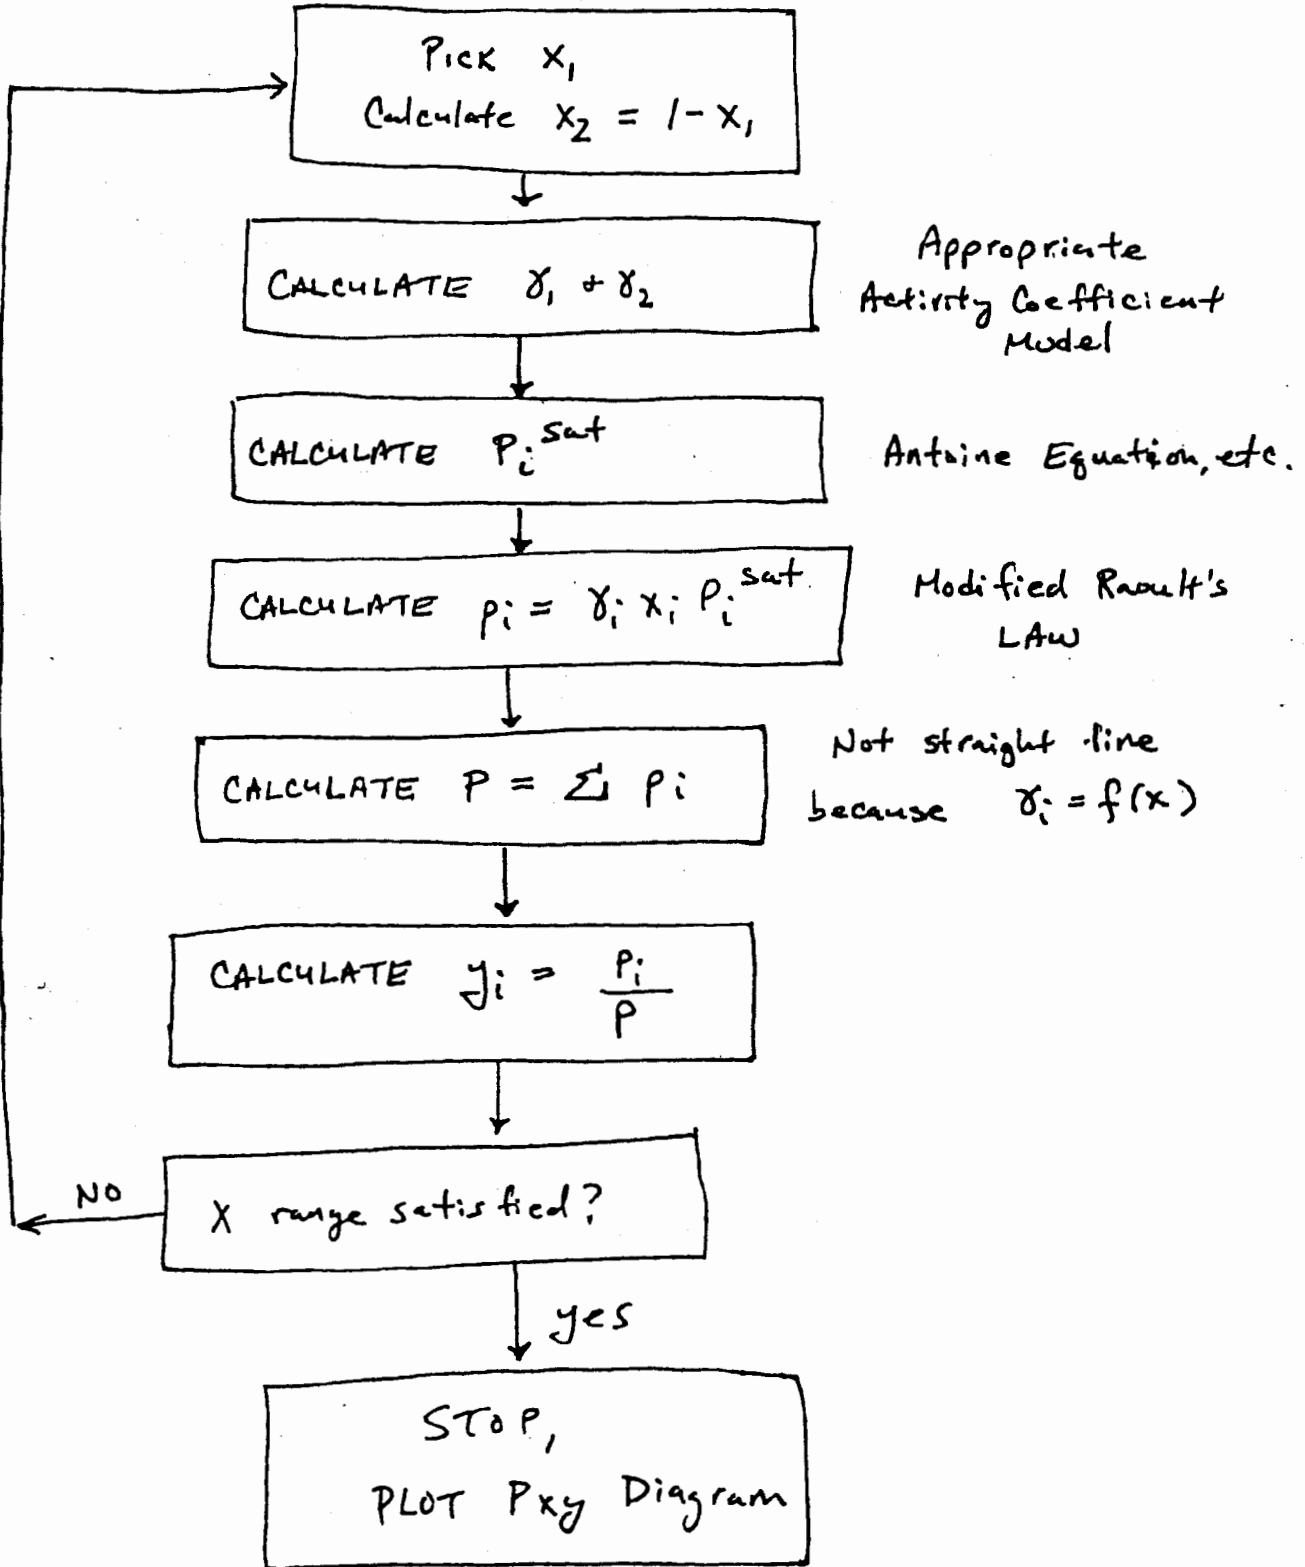 Pick x₁
Calculate x₂ = 1 - x₁
CALCULATE γ₁ + γ₂
Appropriate
Activity Coefficient
Model
CALCULATE Pᵢ^sat
Antoine Equation, etc.
CALCULATE pᵢ = γᵢ xᵢ Pᵢ^sat
Modified Raoult's
LAW
CALCULATE P = Σ pᵢ
Not straight line
because γᵢ = f(x)
CALCULATE yᵢ = pᵢ / P
X range satisfied?
NO
yes
STOP,
PLOT Pxy Diagram